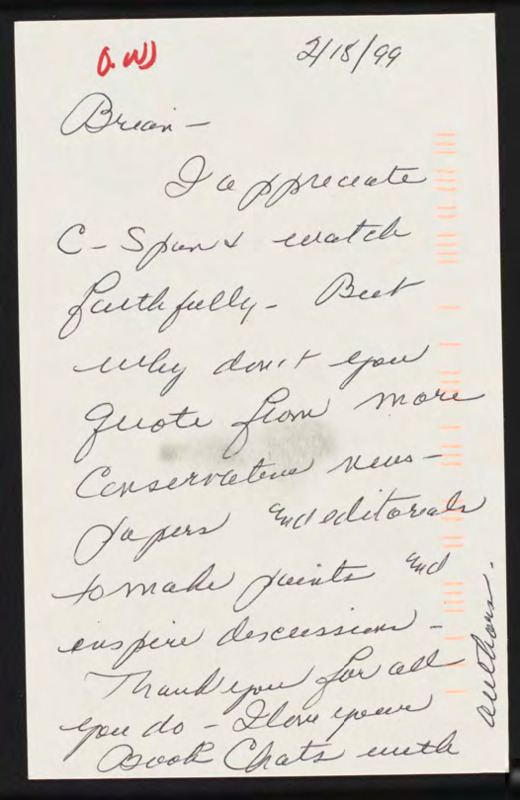 O.W)
2/18/99
Brian -
I appreciate
C-Span & watch
faithfully - But
why don't you
quote from more
Conservative news-
papers and editorials
to make points and
inspire discussion -
Thank you for all
you do - I love your
Book Chats with
authors.